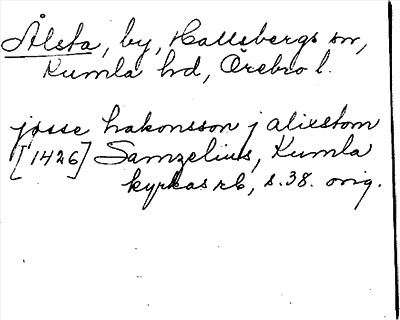 Ålsta, by, Hallsbergs sn,
Kumla hd, Örebro l.
jøsse hakonsson j alixstom
[1426] Samzelius, Kumla
kyrkas rb, s. 38. orig.